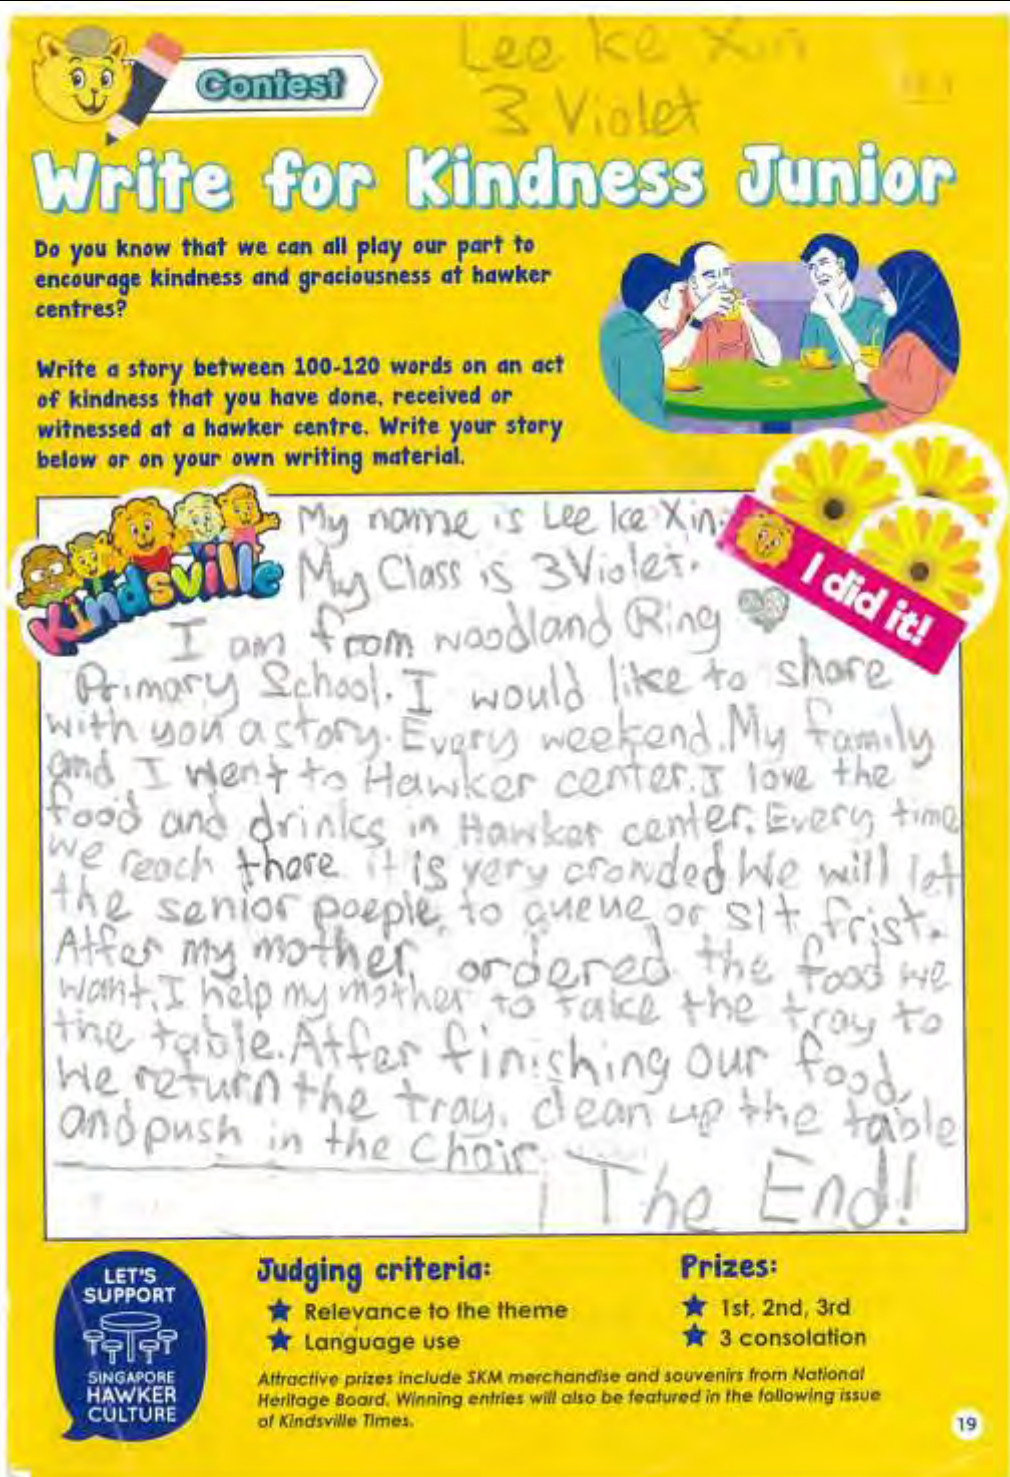 Lee ke Xin
3 Violet
Contest
Write for Kindness Junior
Do you know that we can all play our part to
encourage kindness and graciousness at hawker
centres?
Write a story between 100-120 words on an act
of kindness that you have done, received or
witnessed at a hawker centre. Write your story
below or on your own writing material.
Kindsville
I did it!
My name is Lee ke Xin.
My Class is 3 Violet.
I am from woodland Ring
Primary School. I would like to share
with you a story. Every weekend. My family
and I went to Hawker center. I love the
food and drinks in Hawker center. Every time
we reach there it is very crowded We will let
the senior poeple, to queue or sit frist.
Atfer my mother, ordered the food we
want, I help my mother to take the tray to
the table. Atfer finishing our food,
We return the tray, clean up the table
and push in the Chair.
The End!
LET'S
SUPPORT
SINGAPORE
HAWKER
CULTURE
Judging criteria:
Relevance to the theme
Language use
Prizes:
1st, 2nd, 3rd
3 consolation
Attractive prizes include SKM merchandise and souvenirs from National
Heritage Board. Winning entries will also be featured in the following issue
of Kindsville Times.
19